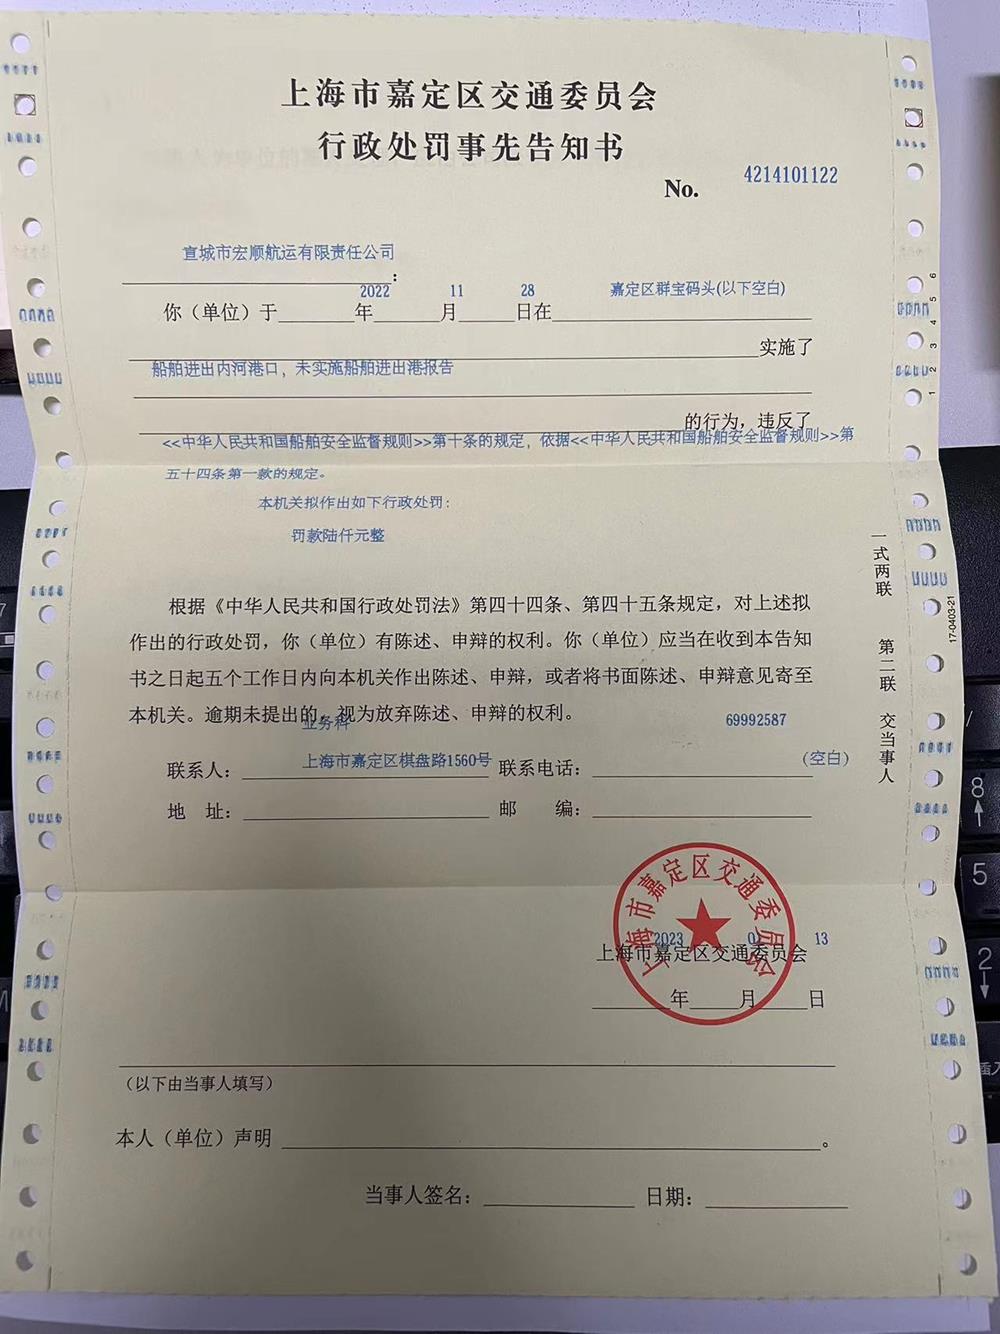 上海市嘉定区交通委员会
行政处罚事先告知书
No. 4214101122
宣城市宏顺航运有限责任公司:
你（单位）于2022年11月28日在嘉定区群宝码头(以下空白)
实施了
船舶进出内河港口，未实施船舶进出港报告
的行为，违反了
<<中华人民共和国船舶安全监督规则>>第十条的规定，依据<<中华人民共和国船舶安全监督规则>>第
五十四条第一款的规定。
本机关拟作出如下行政处罚：
罚款陆仟元整
根据《中华人民共和国行政处罚法》第四十四条、第四十五条规定，对上述拟
作出的行政处罚，你（单位）有陈述、申辩的权利。你（单位）应当在收到本告知
书之日起五个工作日内向本机关作出陈述、申辩，或者将书面陈述、申辩意见寄至
本机关。逾期未提出的，视为放弃陈述、申辩的权利。
业务科 69992587
联系人： 联系电话：
上海市嘉定区棋盘路1560号 (空白)
地 址： 邮 编：
上海市嘉定区交通委员会
上海市嘉定区交通委员会
2023 13
年 月 日
（以下由当事人填写）
本人（单位）声明 。
当事人签名： 日期：
一式两联 第二联 交当事人
17-0403-21
1 2 3 4 5 6
7
8
5
2
插入